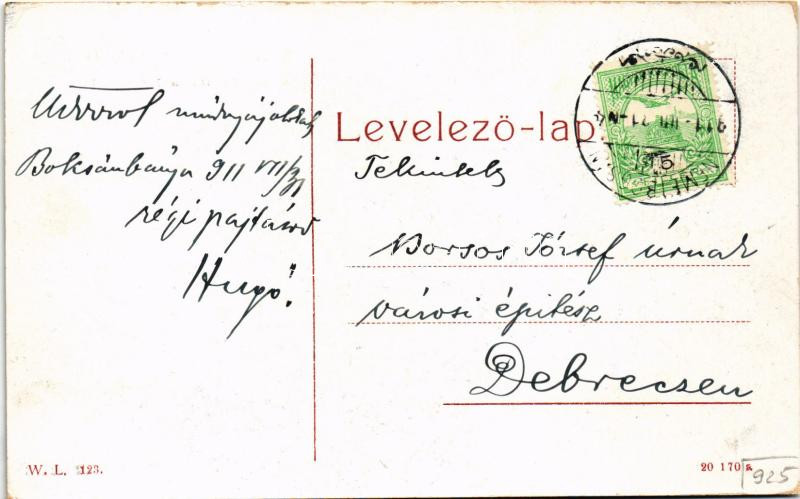 Boksánbánya 911 VII/31
régi pajtásod
Hugó.
Levelező-lap
Tekintetes
Borsos József úrnak
városi építész
Debreczen
W. L. 123.
20 170
925